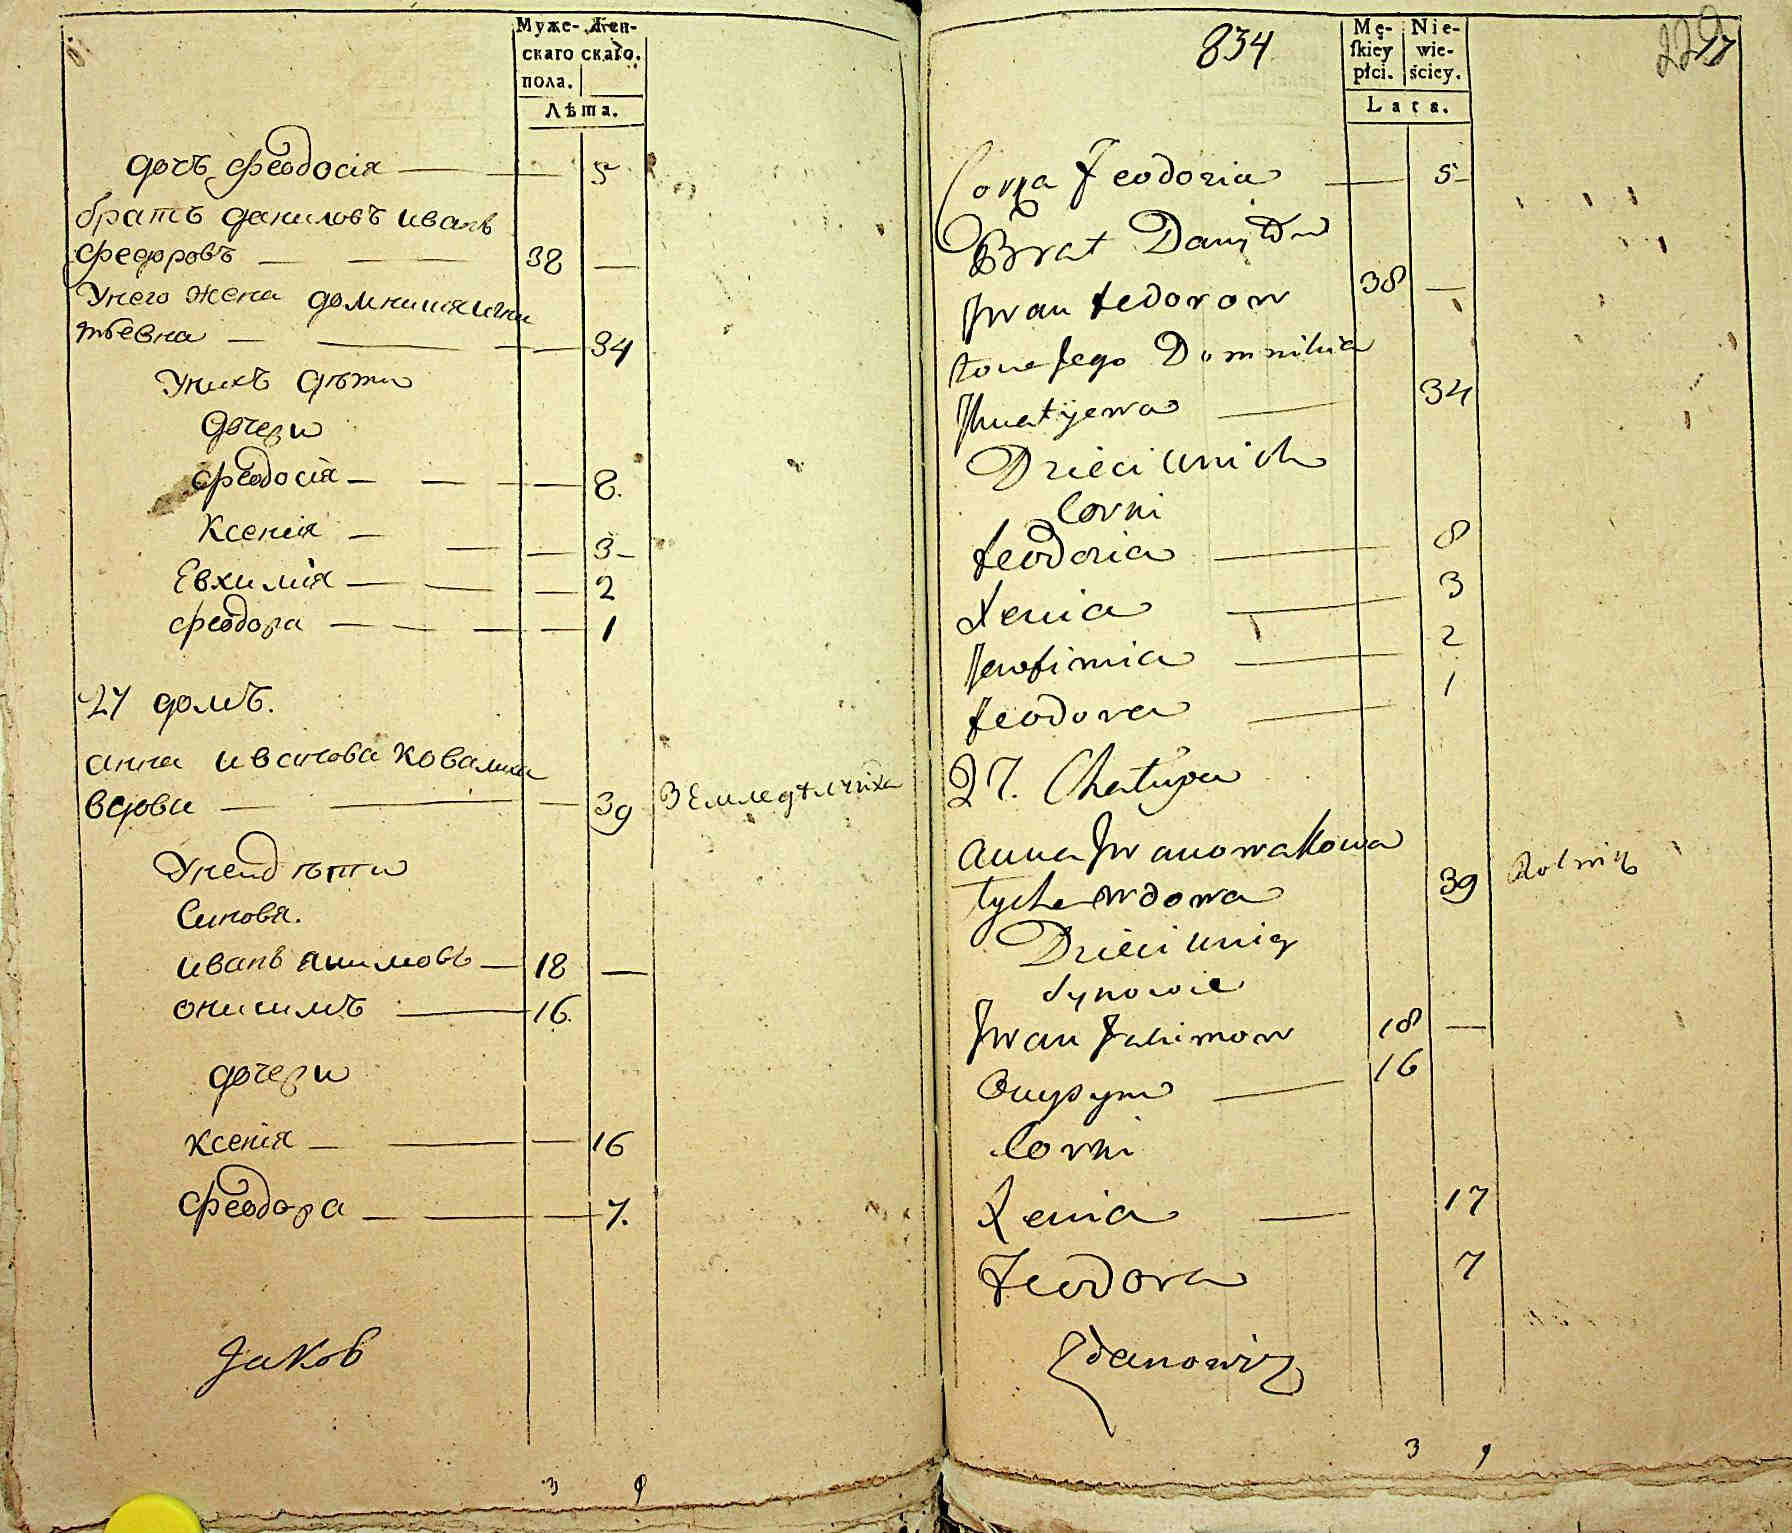 Муже- Жен-
скаго скаго.
пола.
Лѣта.
дочъ феодосія 5
братъ даниловъ иванъ
федоровъ 38
Унего жена домникия игна
тьевна 34
Унихъ дѣти
дочери
феодосія 8.
Ксенія 3
Евхимія 2
феодора 1
27 домъ.
анна иванова ковалиха
вдова 39 Земледѣлчиха
Уней дѣти
Синовя.
иванъ акимовъ 18
онисимъ 16.
дочери
ксенія 16
феодора 7.
Jakob
3 9
834
Mę- Nie-
skiey wie-
płci. ściey.
Lata.
Corka Feodozia 5
Brat Daniłow
Jwan Fedorow 38
żona Jego Domnikia
Jhnatijewa 34
Dzieci unich
Corki
Feodozia 8
Xenia 3
Jewfimia 2
Feodora 1
27. Chałupa
Anna Jwanowa Kowa
lycha wdowa 39 Rolnicz
Dzieci uniey
Synowie
Jwan Jakimow 18
Onysym 16
Corki
Xenia 17
Feodora 7
Zdanowicz
3 9